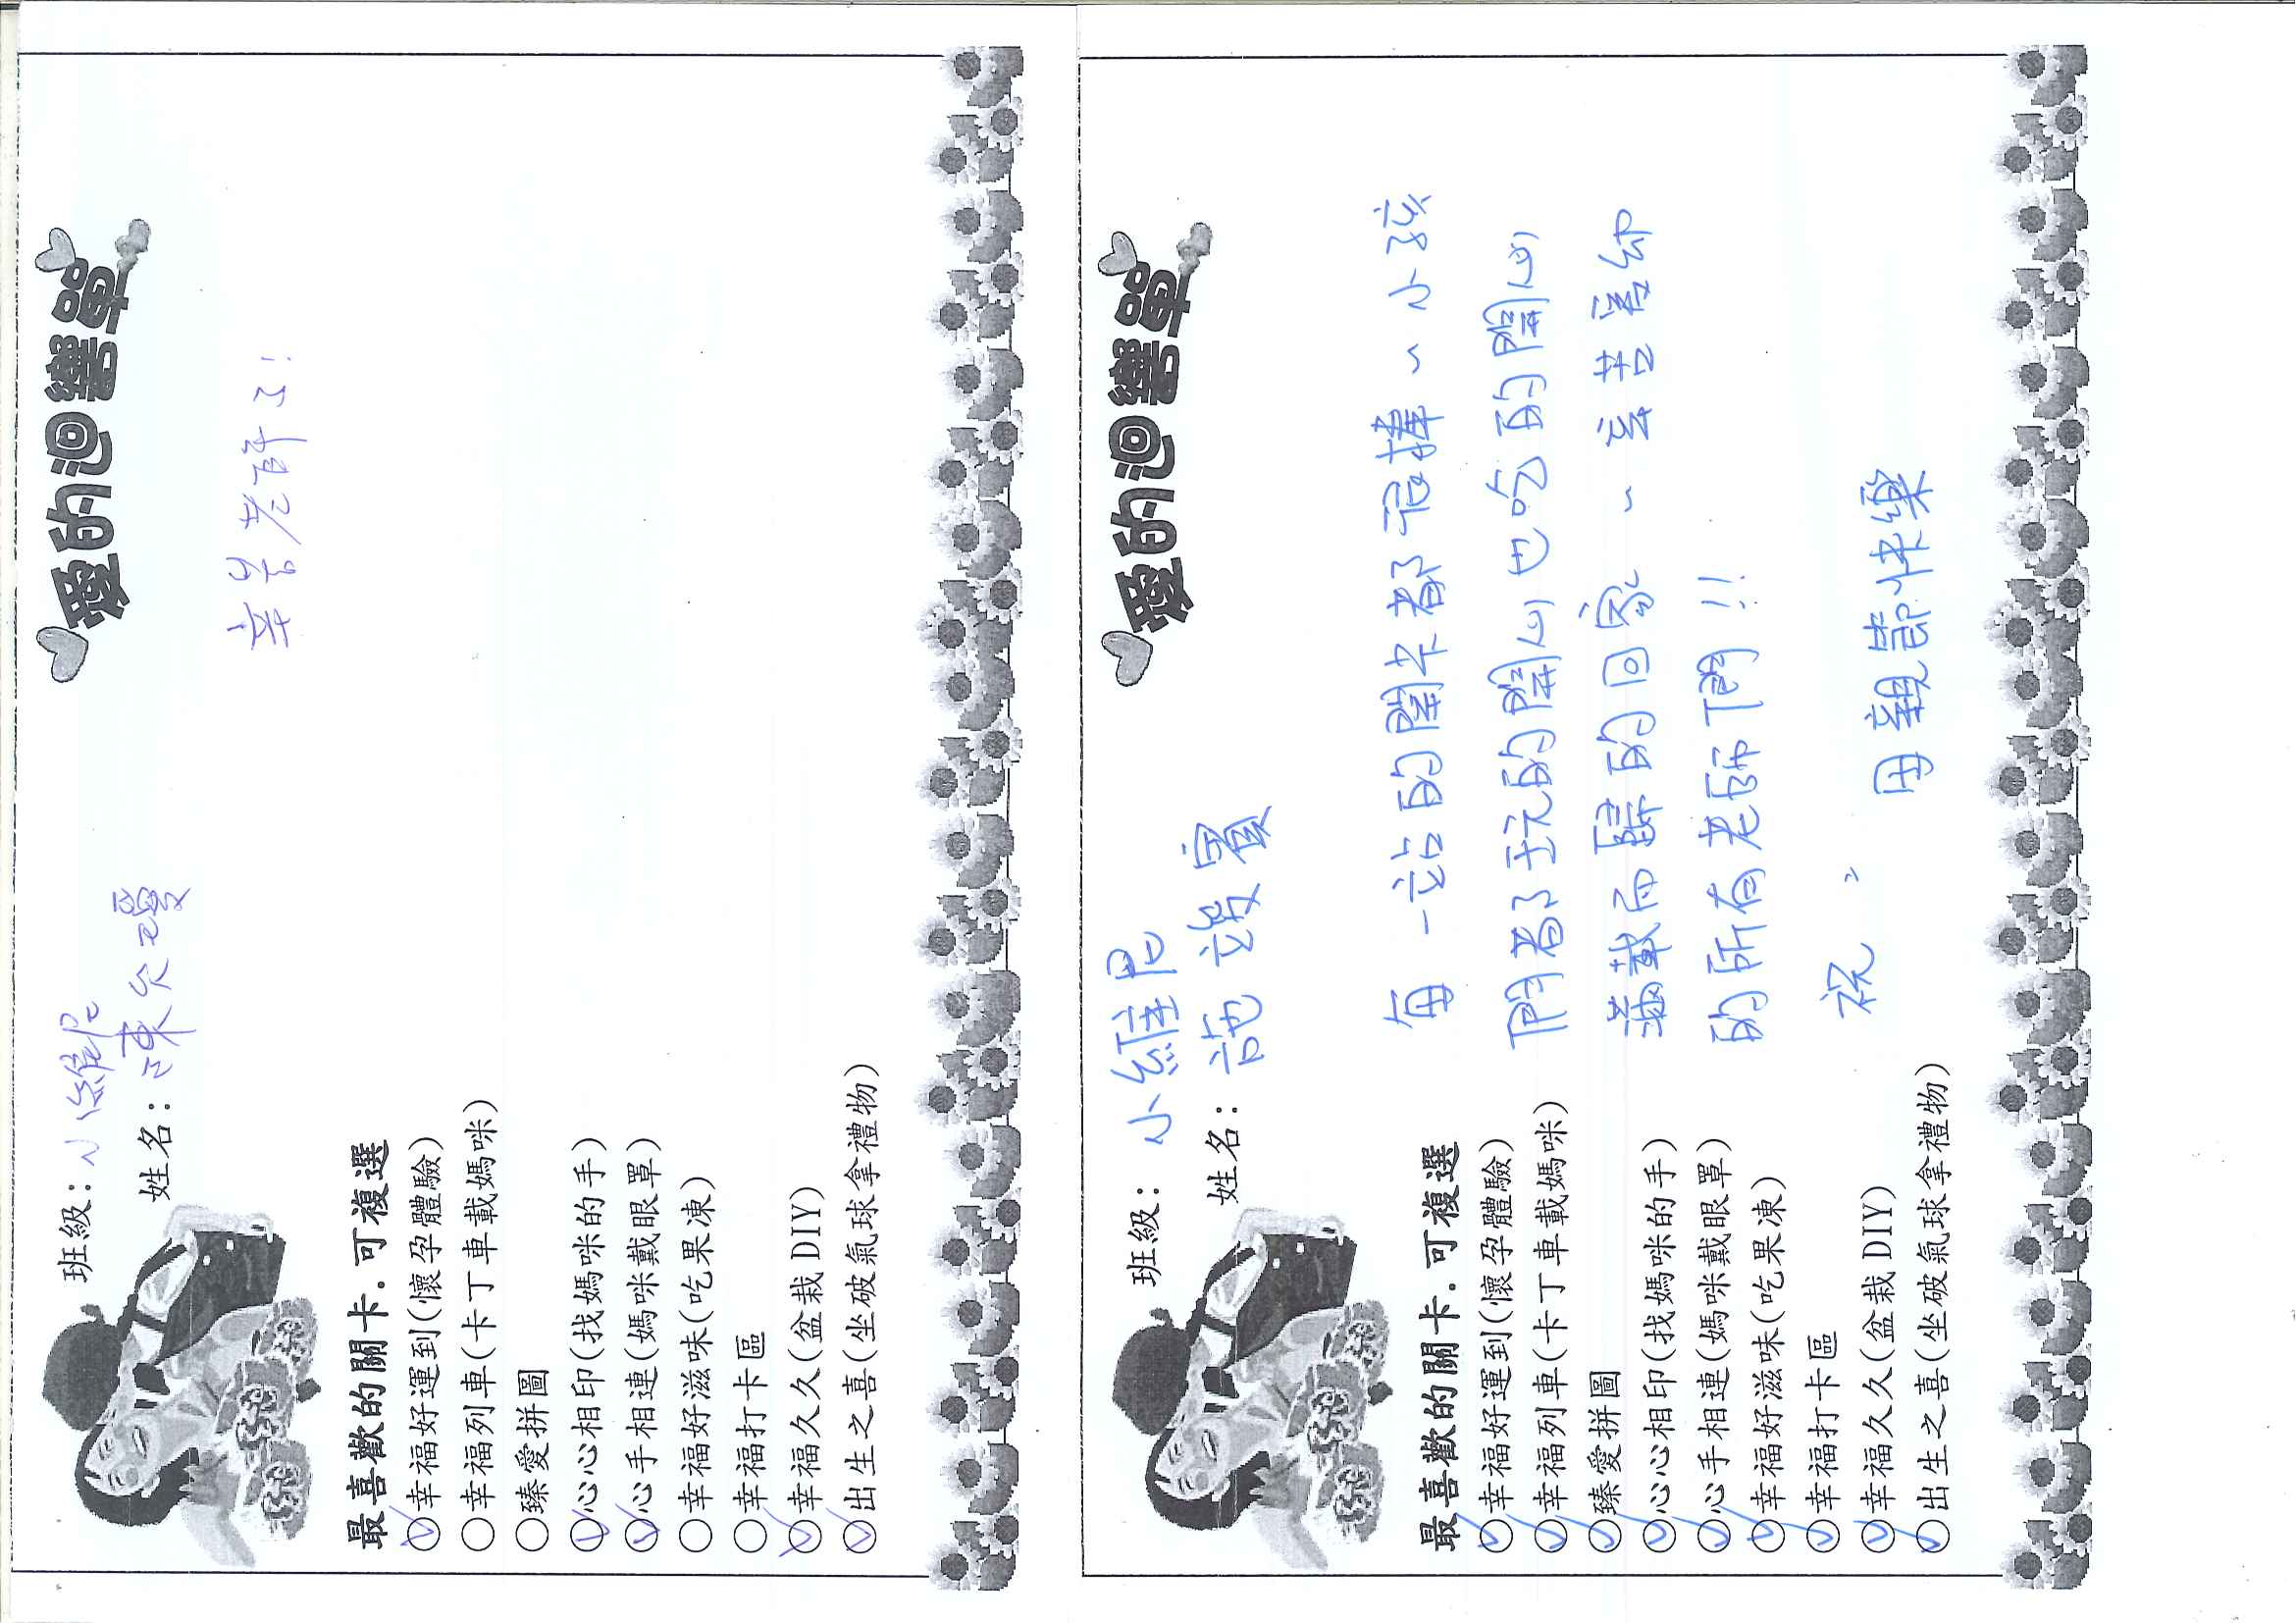 愛的迴響單
班級：小維尼
姓名：陳
辛苦老師了！
最喜歡的關卡．可複選
○幸福好運到(懷孕體驗)
○幸福列車(卡丁車載媽咪)
○臻愛拼圖
○心心相印(找媽咪的手)
○心手相連(媽咪戴眼罩)
○幸福好滋味(吃果凍)
○幸福打卡區
○幸福久久(盆栽DIY)
○出生之喜(坐破氣球拿禮物)
愛的迴響單
班級：小維尼
姓名：范竣賓
每一站的關卡都很棒～小孩
們都玩的開心也吃的開心
滿載而歸的回家～辛苦舊幼
的所有老師們!!
祝
母親節快樂
最喜歡的關卡．可複選
○幸福好運到(懷孕體驗)
○幸福列車(卡丁車載媽咪)
○臻愛拼圖
○心心相印(找媽咪的手)
○心手相連(媽咪戴眼罩)
○幸福好滋味(吃果凍)
○幸福打卡區
○幸福久久(盆栽DIY)
○出生之喜(坐破氣球拿禮物)